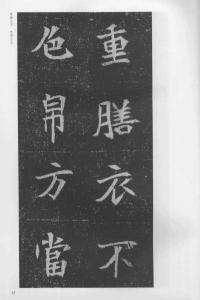 重膳衣不
色帛方當